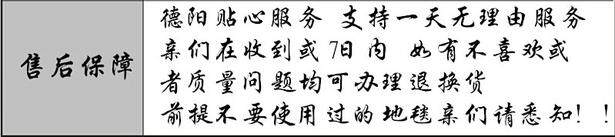 售后保障
德阳贴心服务 支持一天无理由服务
亲们在收到或7日内 如有不喜欢或
者质量问题均可办理退换货
前提不要使用过的地毯亲们请悉知！！